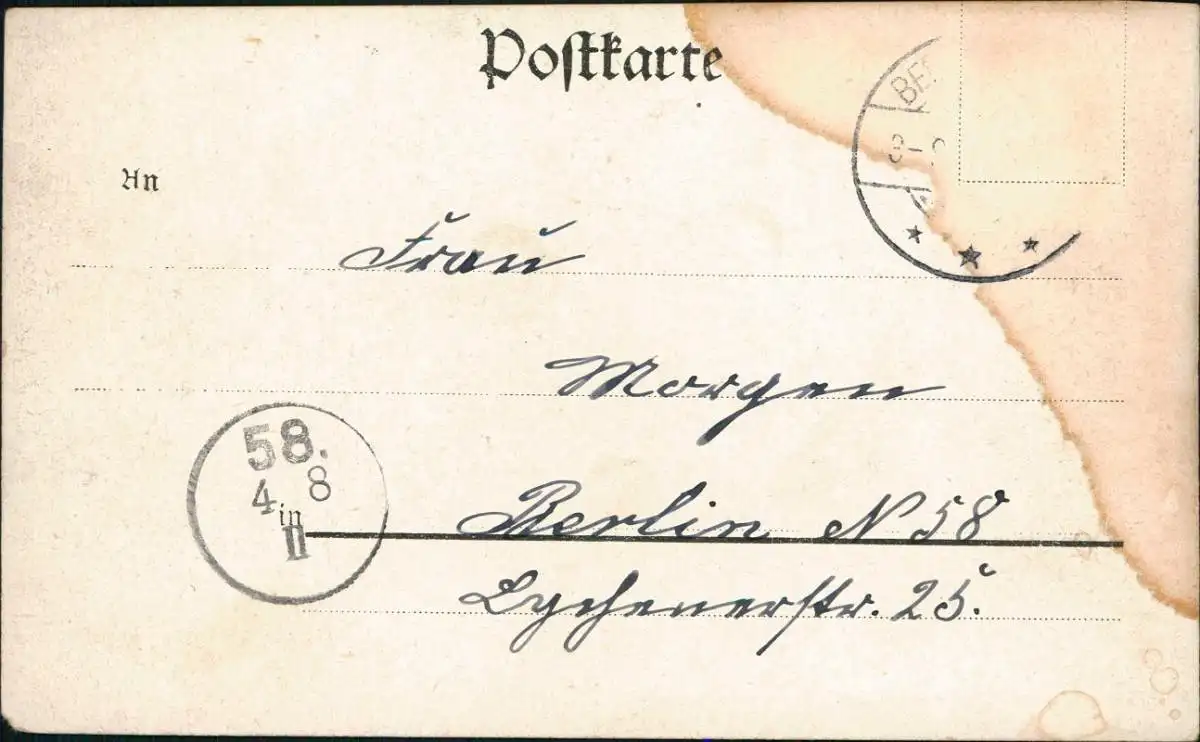 Postkarte
An
Frau
Morgen
in
Berlin N 58
Lychenerstr. 25.
58.
4 8
II